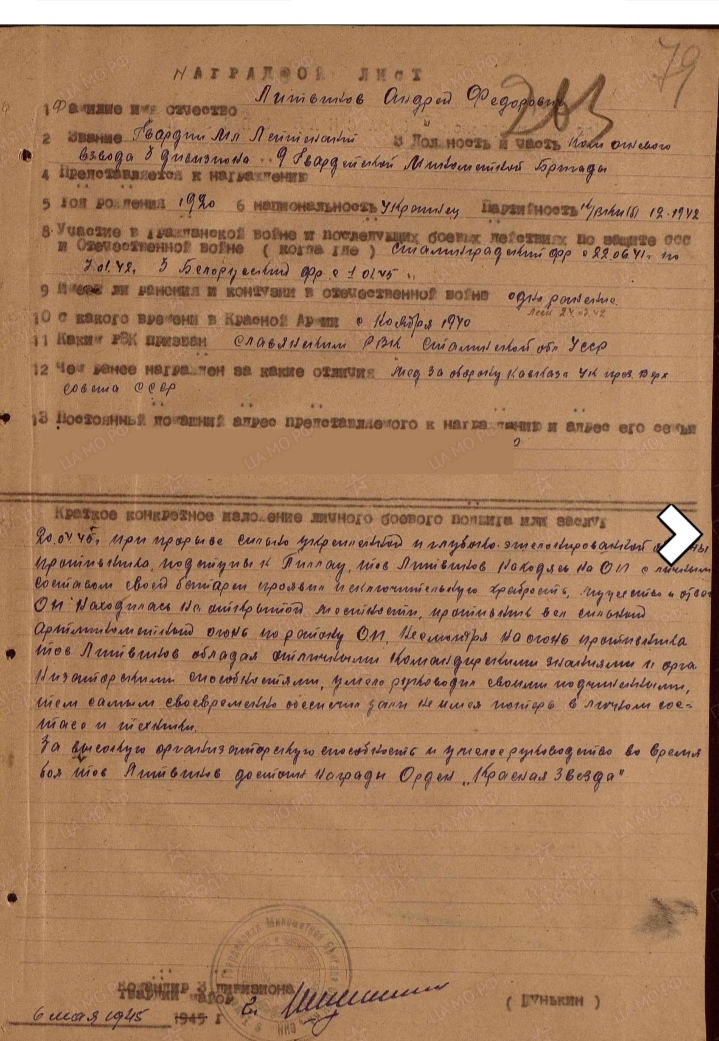 79
НАГРАДНОЙ ЛИСТ
1 Фамилие имя отчество Литвинов Андрей Федорович
2 Звание Гвардии Мл Лейтенант 3 Должность и часть Ком огневого
взвода 3 дивизиона 9 Гвардейской Минометной Бригады
4 Представляется к награждению
5 Год рождения 1920 6 национальность Украинец Партийность ВКП(б) 12.1942
8 Участие в гражданской войне и последующих боевых действиях по защите ССС
и Отечественной войне (когда где) Сталинградский фр с 22.06.41 г. по
7.01.42, 3 Белорусский фр с 1.01.45 г.
9 Имеет ли ранения и контузии в отечественной войне одно ранение
24.07.42
10 с какого времени в Красной Армии с Ноября 1940
11 Каким РВК призван Славянским РВК Сталинской обл УССР
12 Чем ранее награжден за какие отличия мед За оборону Кавказа Ук през Верх
совета СССР
13 Постоянный домашний адрес представляемого к награждению и адрес его семьи
Краткое конкретное изложение личного боевого подвига или заслуг
20.04.45г. при прорыве сильно укрепленной и глубоко эшелонированной
противника, подступы к Пиллау, тов Литвинов находясь на ОП с личным
составом своей батареи проявил исключительную храбрость, мужество и отваг
ОП находилась на открытой местности, противник вел сильный
артминометный огонь по району ОП, несмотря на огонь противника
тов Литвинов обладая отличными командирскими знаниями и орга
низаторскими способностями, умело руководил своими подчиненными,
тем самым своевременно обеспечил залп не имея потерь в личном сос-
таве и технике.
За высокую организаторскую способность и умелое руководство во время
боя тов Литвинов достоин награды Орден „Красная Звезда"
Командир 3 дивизиона
Гвардии майор
(Бунькин)
6 мая 1945 1945 г